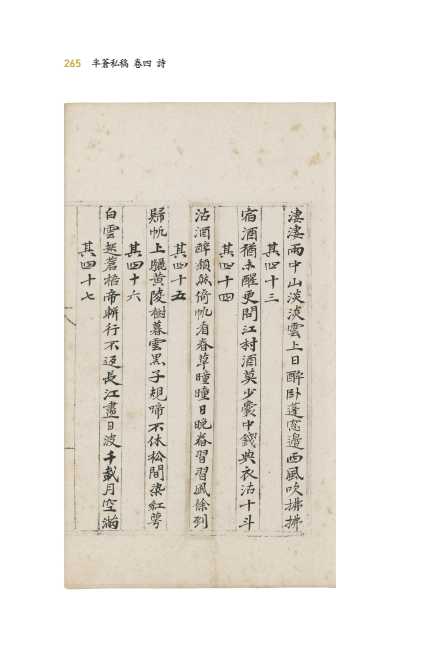 265 半蒼私稿 卷四 詩
淒淒雨中山淡淡雲上日醉卧蓬窓邊西風吹拂拂
其四十三
宿酒猶未醒更問江村酒莫少囊中錢典衣沽十斗
其四十四
沽酒醉頹然倚帆看春草曈曈日晩春習習風餘到
其四十五
歸帆上驪黃陵樹暮雲黑子規啼不休松間染紅萼
其四十六
白雲愁蒼梧帝輧行不返長江盡日波千載月空滿
其四十七